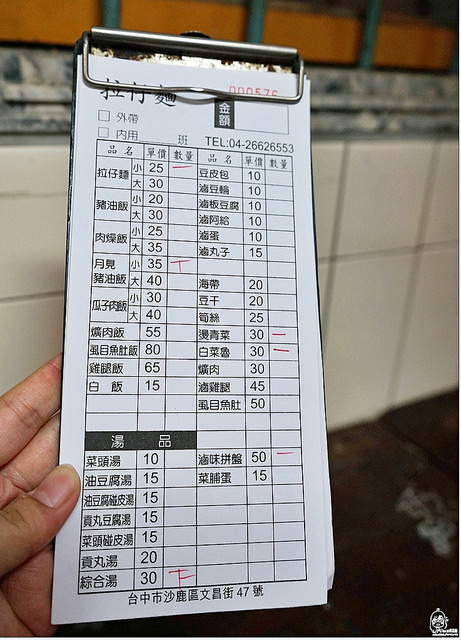 拉仔麵
000576
金額
□ 外帶
□ 內用 班 TEL:04-26626553
品名 單價 數量 品名 單價 數量
拉仔麵 小 25 一 豆皮包 10
大 30 滷豆輪 10
豬油飯 小 20 滷板豆腐 10
大 30 滷阿給 10
肉燥飯 小 25 滷蛋 10
大 35 滷丸子 15
月見豬油飯 小 35 丅
大 40 海帶 20
瓜子肉飯 小 30 豆干 20
大 40 筍絲 25
爌肉飯 55 燙青菜 30 一
虱目魚肚飯 80 白菜魯 30 一
雞腿飯 65 爌肉 30
白飯 15 滷雞腿 45
虱目魚肚 50
湯品
菜頭湯 10 滷味拼盤 50 一
油豆腐湯 15 菜脯蛋 15
油豆腐碰皮湯 15
貢丸豆腐湯 15
菜頭碰皮湯 15
貢丸湯 20
綜合湯 30 下
台中市沙鹿區文昌街 47 號